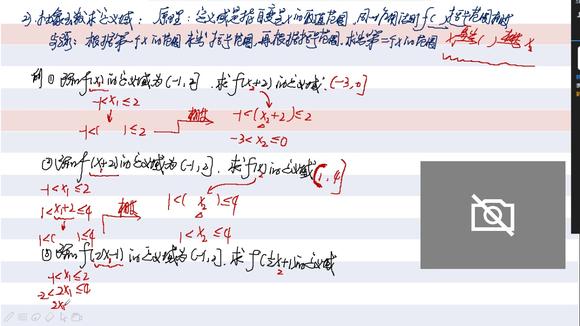 2) 抽象函数求定义域: 原理: 定义域是指自变量x的取值范围, 同一作用法则f( ), 括号范围相同
步骤: 根据第一个x的范围 求出 括号范围, 再根据括号范围, 求出第二个x的范围
例 ① 已知f(x₁)的定义域为(-1,2], 求f(x₂+2)的定义域. (-3,0]
-1<x₁≤2
-1<( )≤2 相同 -1<(x₂+2)≤2
-3<x₂≤0
② 已知f(x₁+2)的定义域为(-1,2], 求f(x₂)的定义域 (1,4]
-1<x₁≤2
1<x₁+2≤4
1<( )≤4 相同 1<( x₂ )≤4
1<x₂≤4
③ 已知f(2x₁-1)的定义域为(-1,2], 求f(½x₂+1)的定义域
-1<x₁≤2
-2<2x₁≤4
2x